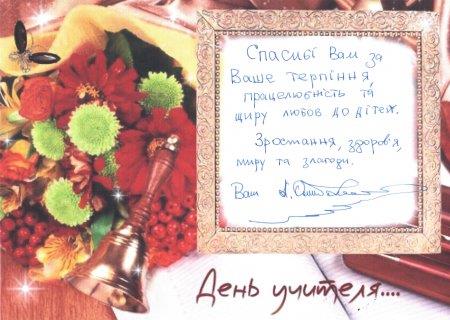 Спасибі Вам за
Ваше терпіння,
працелюбність та
щиру любов до дітей.
Зростання, здоров'я,
миру та злагоди.
Ваш
День учителя....